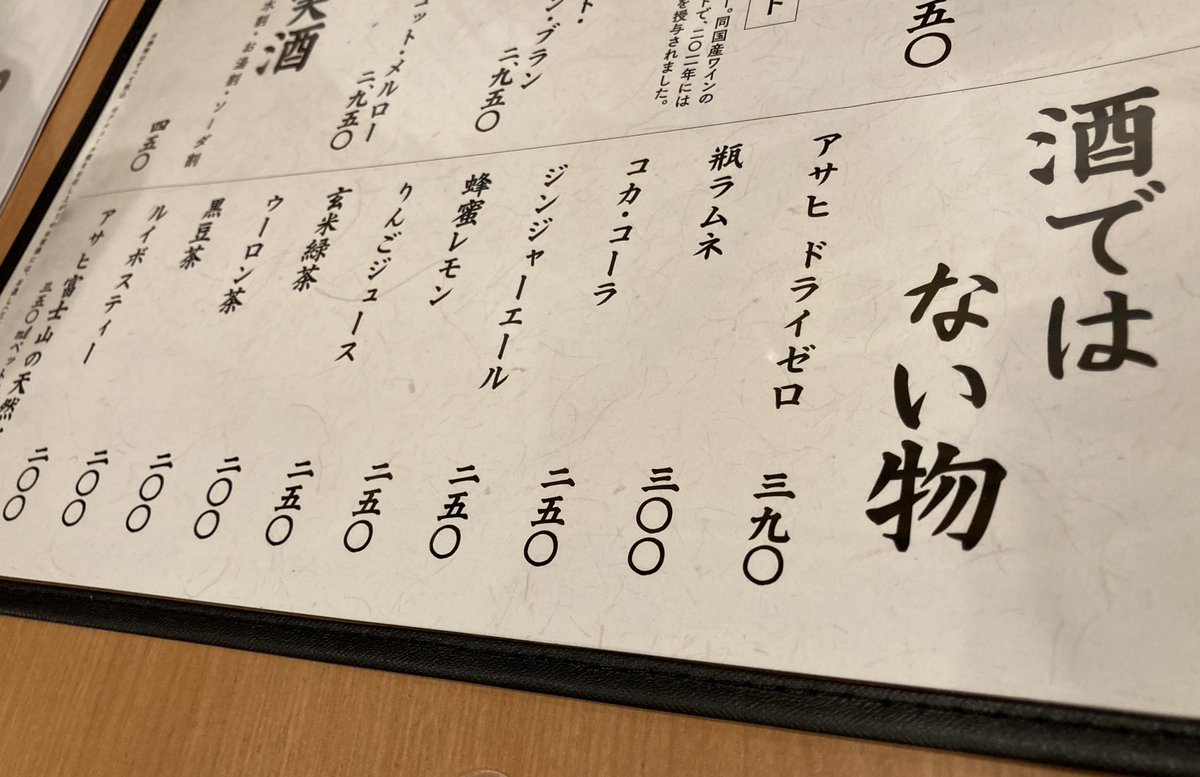 五〇
ト
同国産ワインの
を授与されました。
ン・ブラン
二、九五〇
ット・メルロー
二、九五〇
酒
水割・お湯割・ソーダ割
四五〇
酒では
ない物
アサヒ ドライゼロ 三九〇
瓶ラムネ 三〇〇
コカ・コーラ 二五〇
ジンジャーエール 二五〇
蜂蜜レモン 二五〇
りんごジュース 二五〇
玄米緑茶 二〇〇
ウーロン茶 二〇〇
黒豆茶 二〇〇
ルイボスティー 二〇〇
アサヒ富士山の天然
三五〇mlペット